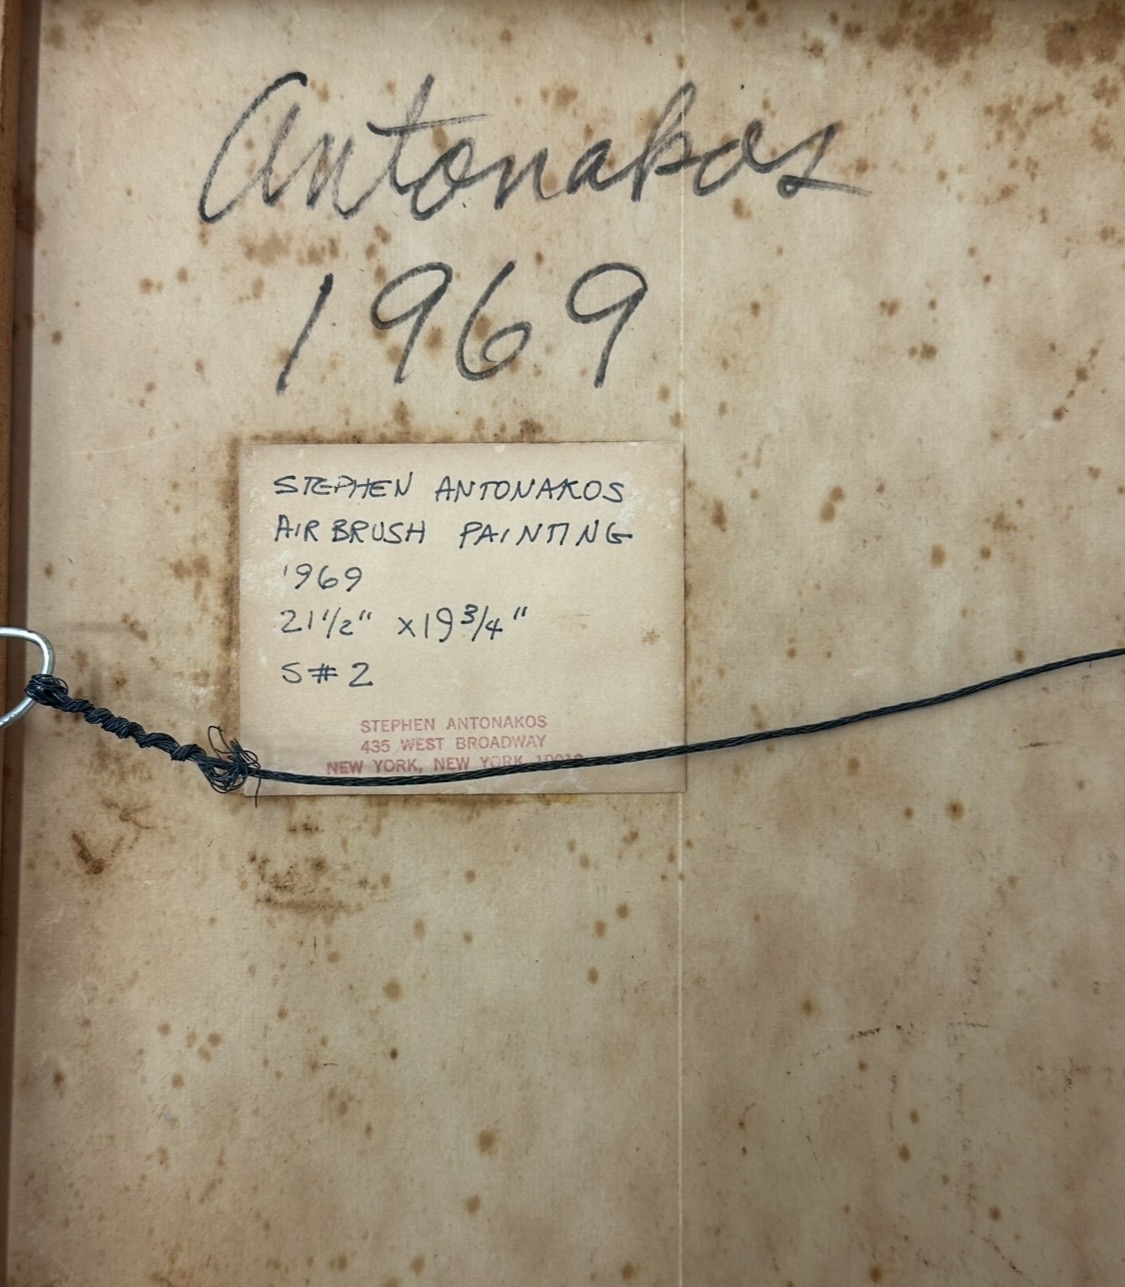 Antonakos
1969
STEPHEN ANTONAKOS
AIRBRUSH PAINTING
1969
21 1/2" x 19 3/4"
S#2
STEPHEN ANTONAKOS
435 WEST BROADWAY
NEW YORK, NEW YORK